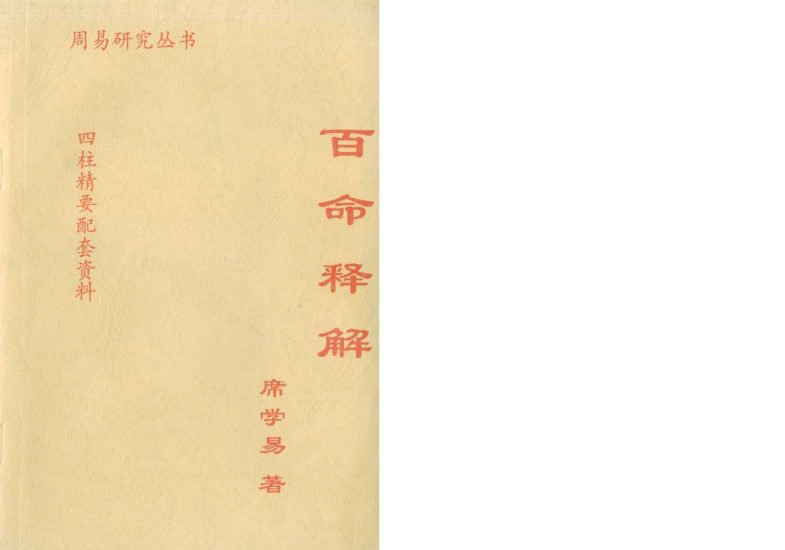 周易研究丛书
四柱精要配套资料
百命释解
席学易 著